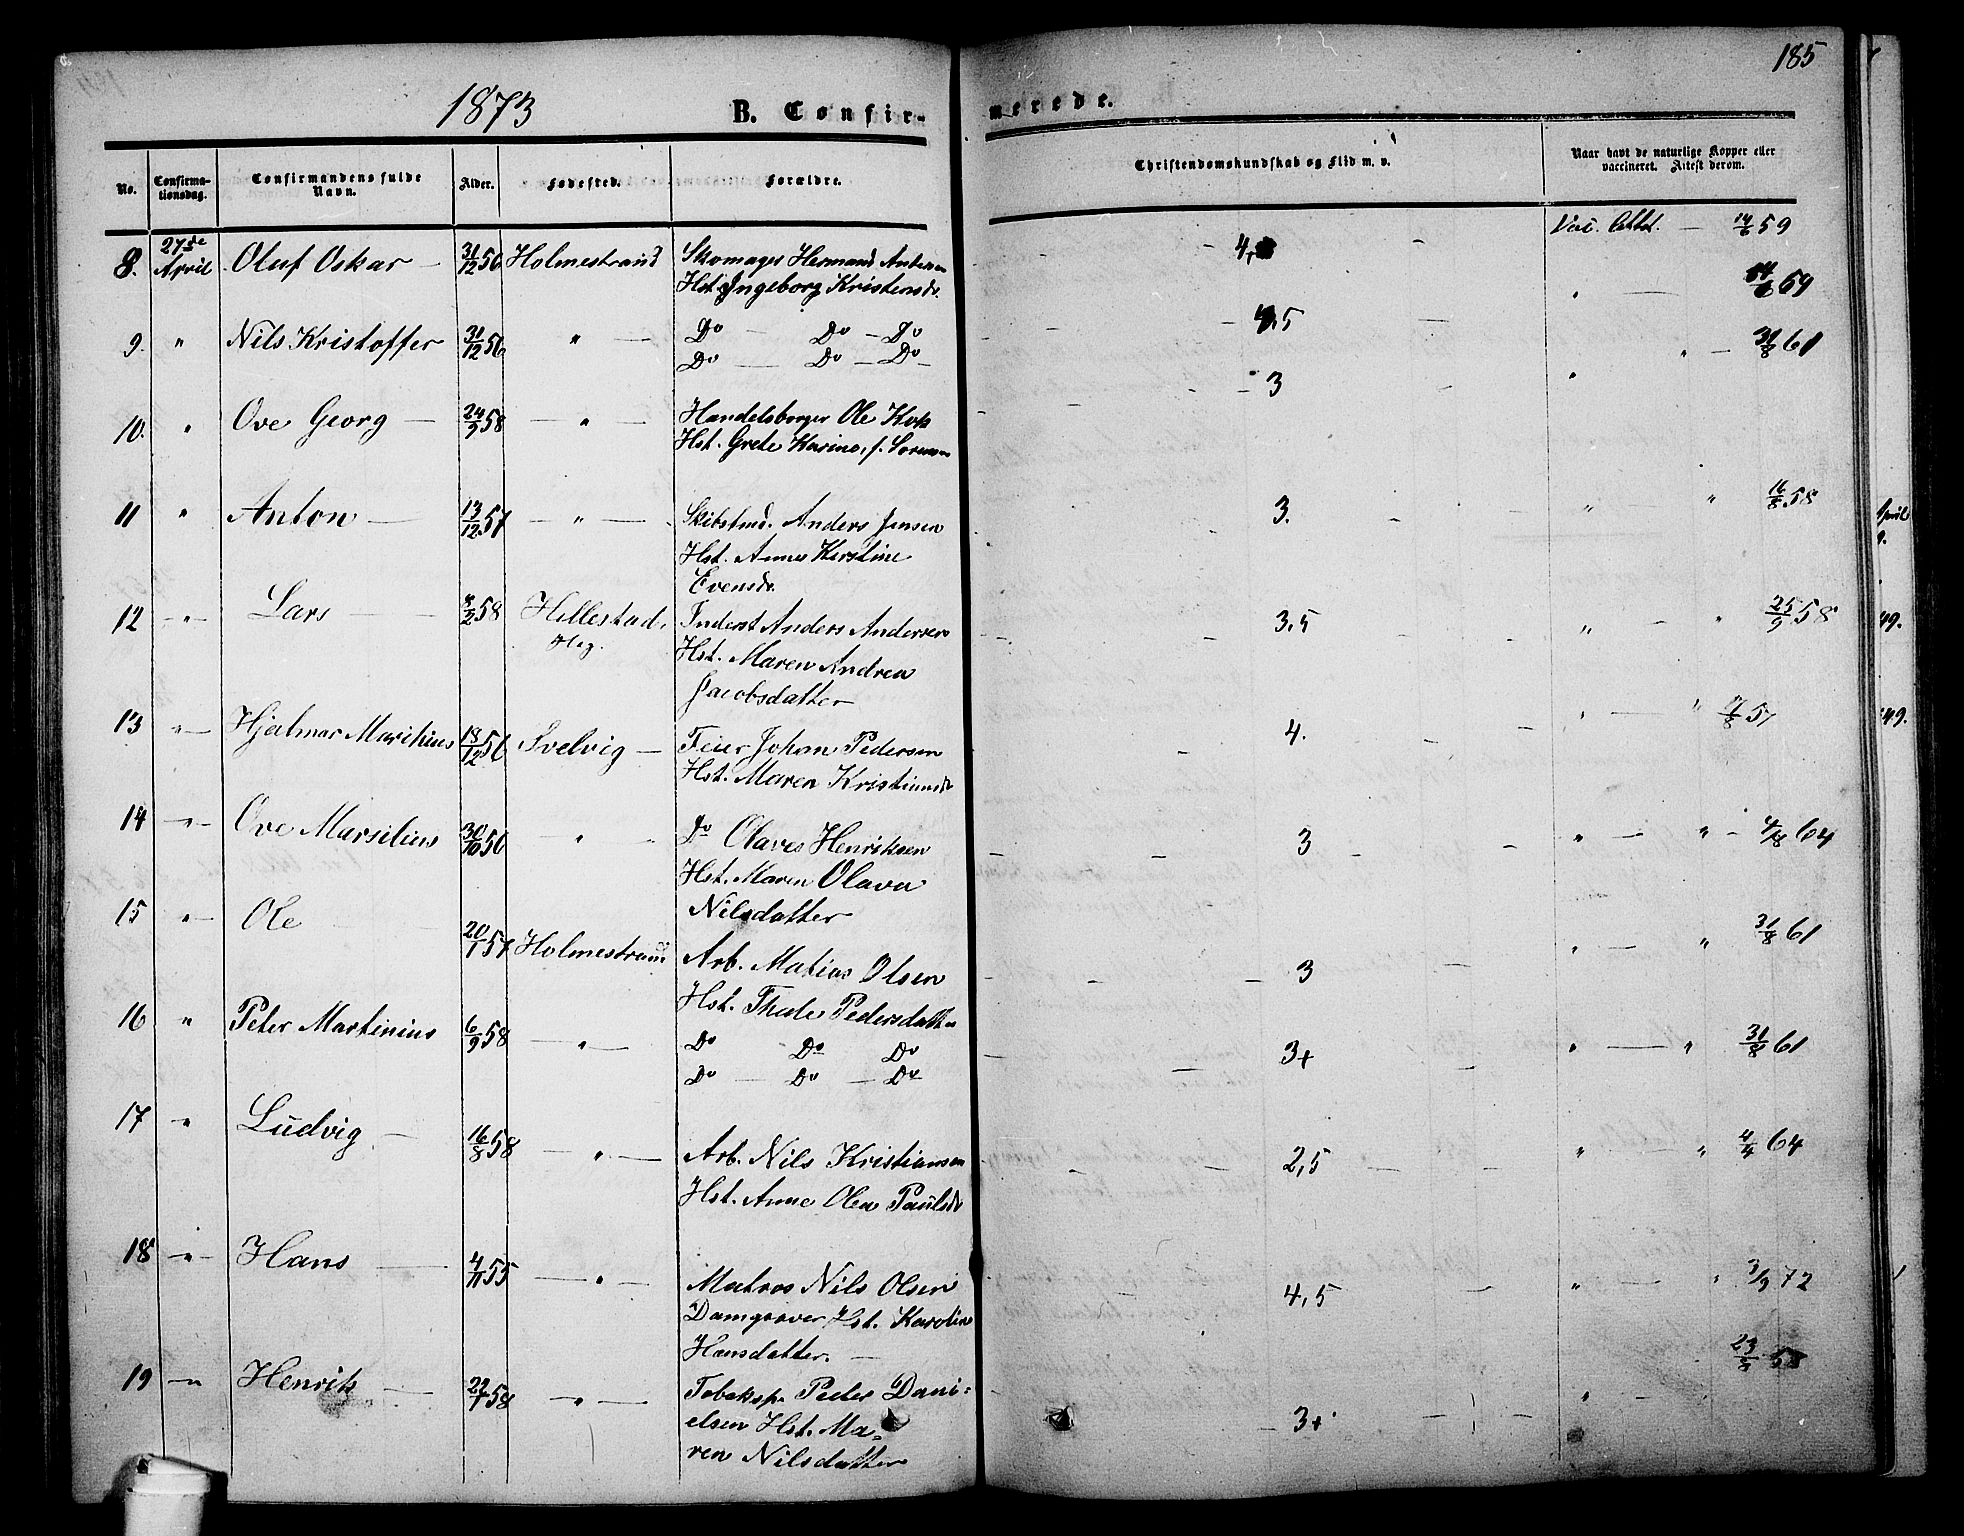 185
1873 B. Confirmerede.
No. Confirmationsdag. Confirmandens fulde Navn. Alder. Fødested. Forældre. Christendomskundskab og Flid m. v. Naar havt de naturlige Kopper eller vaccineret. Attest derom.
8. 27de April Oluf Oskar — 31/12 56 Holmestrand Skomager Hermand — 4, — Vac. Attst. — 14/6 59
Hst. Ingeborg Kristensdr.
9. " Nils Kristoffer 31/12 56 " — Do — Do — Do — 4,5 — " — 14/6 59
Do — Do — Do —
10. " Ove Georg — 24/9 58 — " — Handelsborger Ole — 3 " " — 31/8 61
Hst. Grete Karine, f. Sorensen
11 " Anton — 13/12 57 — " — Skibstmd. Anders Jensen 3. " " 16/8 58
Hst. Anne Kirstine
Evensdr.
12 — " — Lars — 8/2 58 Hillestad, Inderst Anders Andersen — 3,5 " — " 25/9 58
Hst. Maren Andrea
Jacobsdatter
13 " — Hjalmar 18/12 56 Svelvig — Feier Johan Pedersen — 4. " — " 57
Hst. Maren Kristiansdr
14 — " — Ove Marsilius 30/10 56 — " Do Olaves Henriksen — 3 — " — " — 4/8 64
Hst. Maren Olava
Nilsdatter
15 " — Ole 20/1 57 Holmestrand Arb. Matias Olsen — 3 — " — " 31/8 61
Hst. Thale Pedersdatter
16 " Peter Martinius 6/9 58 — " — Do Do Do 3+ " — " 31/8 61
Do — Do — Do
17 " Ludvig — 16/8 58 — " — Arb. Nils Kristiansen — 2,5 — " " 4/4 64
Hst. Anne Olea Paulsdr
18 — " — Hans — 4/11 55 — " — Matros Nils Olsen — 4,5 " — " 3/3 72
Damgraver, Hst. Karolin
Hansdatter. —
19 — " Henrik — 22/1 58 — " — Tobaksp. Peder Dani= — 3+ — " — 58
elsen Hst. Ma=
ren Nilsdatter